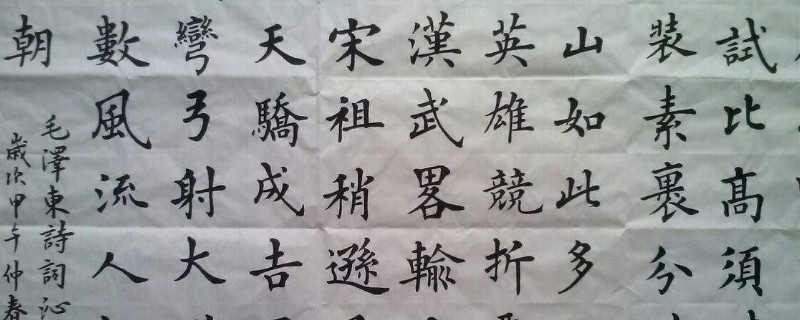 試比高須
裝素裹分
山如此多
英雄競折
漢武畧輸
宋祖稍遜
天驕成吉
彎弓射大
數風流人
朝
毛澤東詩詞沁
歲次甲午仲春